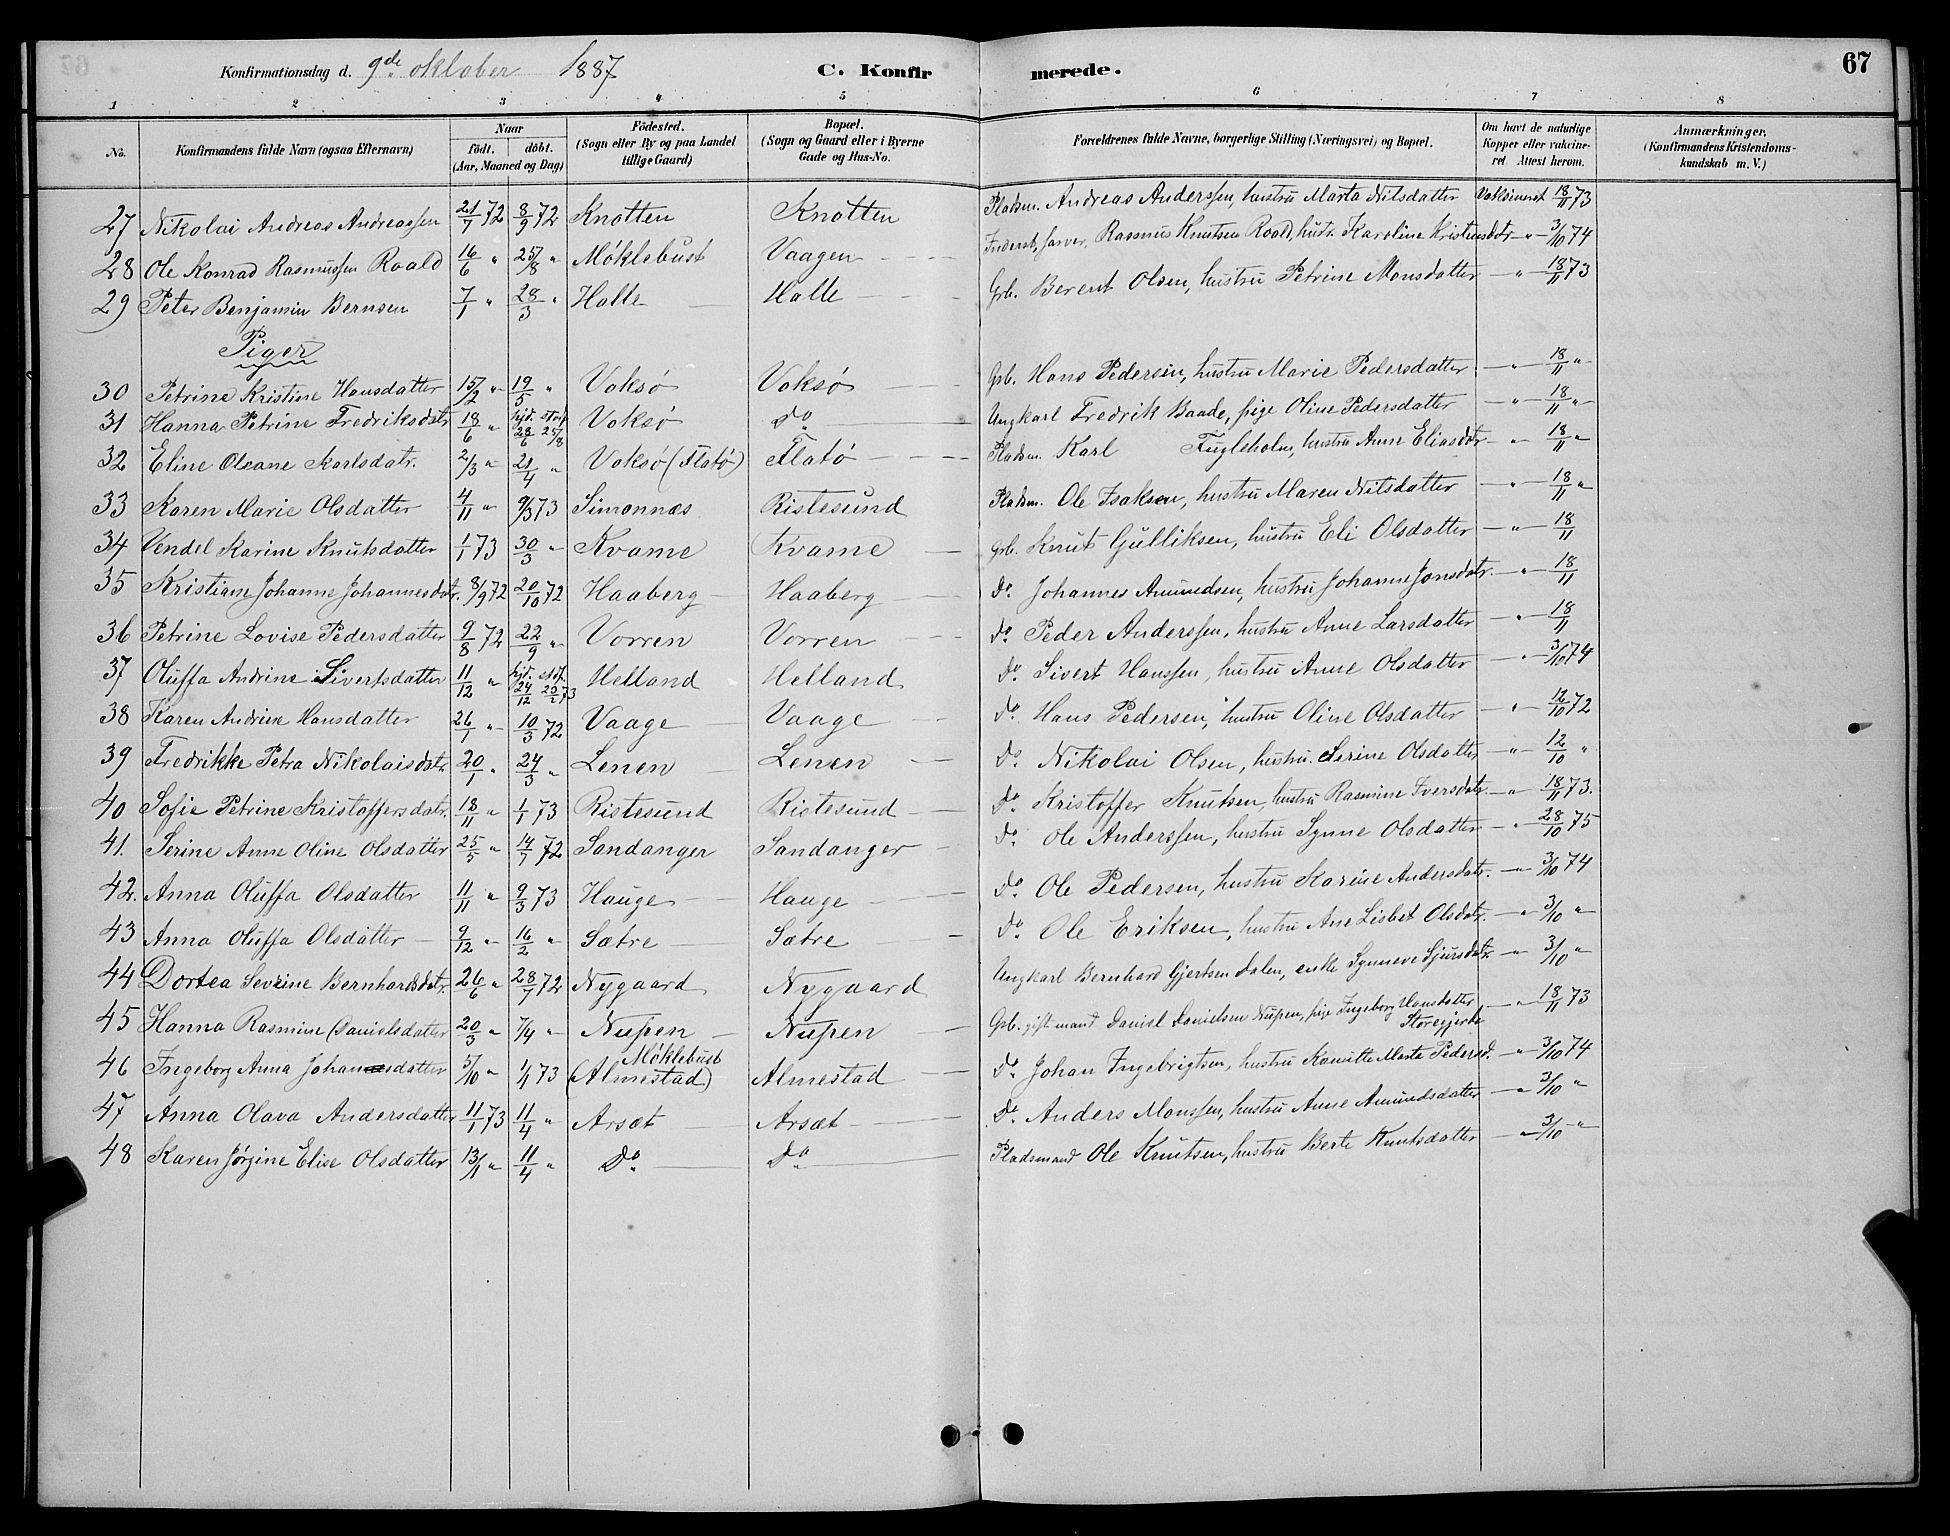 Konfirmationsdag d. 9de oktober 1887 C. Konfirmerede. 67
1 2 3 4 5 6 7 8
No. Konfirmandens fulde Navn (ogsaa Efternavn) Naar født. døbt. (Aar, Maaned og Dag) Fødested. (Sogn eller By og paa Landet tillige Gaard) Bopæl. (Sogn og Gaard eller i Byerne Gade og Hus-No. Forældrenes fulde Navne, borgerlige Stilling (Næringsvei) og Bopæl. Om havt de naturlige Kopper eller vaccineret. Attest herom. Anmærkninger. (Konfirmandens Kristendomskundskab m. V.)
27 Nikolai Andreas Andreassen 21/7 72 8/9 72 Knotten Knotten Pladsm. Andreas Anderssen, hustru Marta Nilsdatter Vaksineret 18/11 73
28 Ole Konrad Rasmussen Roald 16/6 " 25/8 " Møklebust Vaagen Inderst, farver, Rasmus Knutsen Roald, hustr. Karoline Kristensdtr — " — 3/10 74
29 Peter Benjamin Bernsen 7/1 " 28/3 " Halle Halle Grb. Berent Olsen, hustru Petrine Monsdatter — " — 18/11 73
Piger
30 Petrine Kristine Hansdatter 15/2 " 19/5 " Voksø Voksø Grb. Hans Pedersen, hustru Marie Pedersdatter — " — 18/11 "
31 Hanna Petrine Fredriksdatr 18/6 " hjd. 28/6 stadf. 25/8 Voksø Do Ungkarl Fredrik Baade, pige Oline Pedersdatter — " — 18/11 "
32 Eline Oleane Karlsdatr. 2/3 " 21/4 " Voksø (Flatø) Flatø Pladsm. Karl Fugleholm, hustru Anne Eliasdtr — " — 18/11 "
33 Karen Marie Olsdatter 4/11 " 9/3 73 Simonnæs Ristesund Pladsm. Ole Isaksen, hustru Maren Nilsdatter — " — 18/11 "
34 Vendel Karine Knutsdatter 1/1 73 30/3 " Kvame Kvame Grb. Knut Gulliksen, hustru Eli Olsdatter — " — 18/11
35 Kristiane Johanne Johannesdatr. 8/9 72 20/10 72 Haaberg Haaberg Do Johannes Amundsen, hustru Johanne Jonsdatr. — " — 18/11
36 Petrine Lovise Pedersdatter 9/8 72 22/9 " Vorren Vorren Do Peder Anderssen, hustru Anne Larsdatter — " — 18/11
37 Oluffa Andrine Sivertsdatter 11/12 " hjd. 24/12 stadf. 20/2 73 Helland Helland Do Sivert Hanssen, hustru Anne Olsdatter — " — 3/10 74
38 Karen Andrine Hansdatter 26/1 " 10/3 72 Vaage Vaage Do Hans Pedersen, hustru Oline Olsdatter — " — 12/10 72
39 Fredrikke Petra Nikolaisdatr 20/1 " 24/3 " Lenen Lenen Do Nikolai Olsen, hustru Serine Olsdatter — " — 12/10 "
40 Sofie Petrine Kristoffersdatr. 18/11 " 1/1 73 Ristesund Ristesund Do Kristoffer Knutsen, hustru Rasmine Iversdatr. — " — 18/11 73.
41. Serine Anne Oline Olsdatter 25/5 " 14/7 72 Sandanger Sandanger Do Ole Anderssen, hustru Synne Olsdatter — " — 28/10 75
42. Anna Oluffa Olsdatter 11/11 " 9/3 73 Hauge Hauge Do Ole Pedersen, hustru Karine Andersdatr. — " — 3/10 74
43 Anna Oluffa Olsdatter 9/12 " 16/2 " Sætre Sætre Do Ole Eriksen, hustru Ane Lisbet Olsdatr. — " — 3/10 "
44 Dortea Severine Bernhardsdatr. 26/6 " 28/7 72 Nygaard Nygaard Ungkarl Bernhard Gjertsen Dalen, enke Synneve Sjursdatr. — " — 3/10 "
45 Hanna Rasmine Danielsdatter 20/3 " 7/4 " Nupen Nupen Grb. gift mand Daniel Danielsen Nupen, pige Ingeborg Hansdatter Storegjerde — " — 18/11 73
46 Ingeborg Anna Johansdatter 5/10 " 1/1 73 Møklebust (Almestad) Almestad Do Johan Ingebrigtsen, hustru Kanutte Marte Pedersd. — " — 3/10 74
47 Anna Olava Andersdatter 11/1 73 11/4 " Arsæt Arsæt Do Anders Monssen, hustru Anne Amundsdatter — " — 3/10 "
48 Karen Jørgine Elise Olsdatter 13/1 " 11/4 " Do Do Pladsmand Ole Knutsen, hustru Berte Knutsdatter — " — 3/10 "